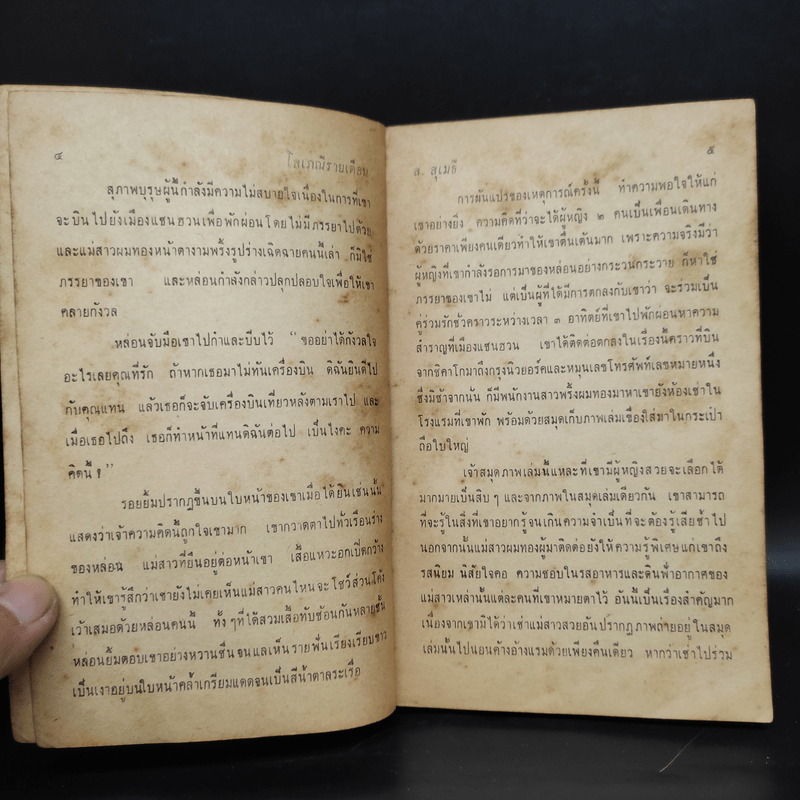 ๔
โสเภณีรายเดือน
สุภาพบุรุษผู้นี้กำลังมีความไม่สบายใจเนื่องในการที่เขา
จะบินไปยังเมืองแซนฮวนเพื่อพักผ่อนโดยไม่มีภรรยาไปด้วย
และแม่สาวผมทองหน้าตางามพริ้งรูปร่างเฉิดฉายคนนี้เล่า ก็มิใช่
ภรรยาของเขา และหล่อนกำลังกล่าวปลุกปลอบใจเพื่อให้เขา
คลายกังวล
หล่อนจับมือเขาไปกำและบีบไว้ “ขออย่าได้กังวลใจ
อะไรเลยคุณที่รัก ถ้าหากเธอมาไม่ทันเครื่องบิน ดิฉันยินดีไป
กับคุณแทน แล้วเธอก็จะจับเครื่องบินเที่ยวหลังตามเราไป และ
เมื่อเธอไปถึง เธอก็ทำหน้าที่แทนดิฉันต่อไป เป็นไงคะ ความ
คิดนี้ ?”
รอยยิ้มปรากฏขึ้นบนใบหน้าของเขาเมื่อได้ยินเช่นนั้น
แสดงว่าเจ้าความคิดนี้ถูกใจเขามาก เขากวาดตาไปทั่วเรือนร่าง
ของหล่อน แม่สาวที่ยืนอยู่ต่อหน้าเขา เสื้อแหวะอกเปิดกว้าง
ทำให้เขารู้สึกว่าเขายังไม่เคยเห็นแม่สาวคนไหนจะโชว์ส่วนโค้ง
เว้าเสมอด้วยหล่อนคนนี้ ทั้ง ๆ ที่ได้สวมเสื้อทับซ้อนกันหลายชั้น
หล่อนยิ้มตอบเขาอย่างหวานชื่นจนแลเห็นรายฟันเรียงเรียบขาว
เป็นเงาอยู่บนใบหน้าคล้ำเกรียมแดดจนเป็นสีน้ำตาลระเรื่อ
ส. สุเมธ
๕
การผันแปรของเหตุการณ์ครั้งนี้ ทำความพอใจให้แก่
เขาอย่างยิ่ง ความคิดที่ว่าจะได้ผู้หญิง ๒ คนเป็นเพื่อนเดินทาง
ด้วยราคาเพียงคนเดียวทำให้เขาตื่นเต้นมาก เพราะความจริงมีว่า
ผู้หญิงที่เขากำลังรอการมาของหล่อนอย่างกระวนกระวาย ก็หาใช่
ภรรยาของเขาไม่ แต่เป็นผู้ที่ได้มีการตกลงกับเขาว่า จะร่วมเป็น
คู่ร่วมรักชั่วคราวระหว่างเวลา ๓ อาทิตย์ที่เขาไปพักผ่อนหาความ
สำราญที่เมืองแซนฮวน เขาได้ติดต่อตกลงในเรื่องนี้คราวที่บิน
จากชิคาโกมาถึงกรุงนิวยอร์คและหมุนเลขโทรศัพท์เลขหมายหนึ่ง
ซึ่งมิช้าจากนั้น ก็มีพนักงานสาวพริ้งผมทองมาหาเขายังห้องเช่าใน
โรงแรมที่เขาพัก พร้อมด้วยสมุดเก็บภาพเล่มเขื่องใส่มาในกระเป๋า
ถือใบใหญ่
เจ้าสมุดภาพเล่มนี้แหละที่เขามีผู้หญิงสวยจะเลือกได้
มากมายเป็นสิบ ๆ และจากภาพในสมุดเล่มเดียวกัน เขาสามารถ
ที่จะรู้ในสิ่งที่เขาอยากรู้จนเกินความจำเป็นที่จะต้องรู้เสียซ้ำไป
นอกจากนั้นแม่สาวผมทองผู้มาติดต่อยังให้ความรู้พิเศษแก่เขาถึง
รสนิยม นิสัยใจคอ ความชอบในรสอาหารและดินฟ้าอากาศของ
แม่สาวเหล่านั้นแต่ละคนที่เขาหมายตาไว้ อันนี้เป็นเรื่องสำคัญมาก
เนื่องจากเขามิได้ว่าเช่าแม่สาวสวยอันปรากฏภาพถ่ายอยู่ในสมุด
เล่มนั้นไปนอนค้างอ้างแรมด้วยเพียงคืนเดียว หากว่าเช่าไปร่วม